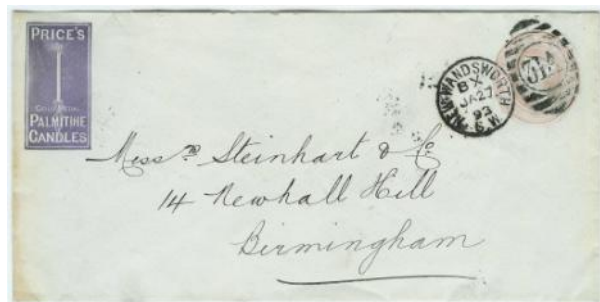 PRICE'S
GOLD MEDAL
PALMITINE
CANDLES
NEW WANDSWORTH
BX
JA 27
93
S.W.
Messrs Steinhart & Co
14 Newhall Hill
Birmingham